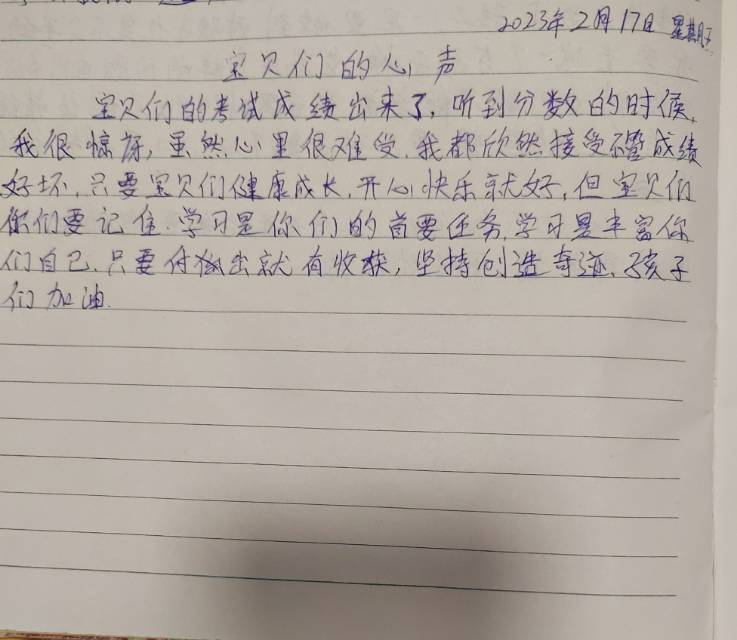 2023年2月17日 星期五
宝贝们的心声
宝贝们的考试成绩出来了,听到分数的时候,
我很惊讶,虽然心里很难受.我都欣然接受不管成绩
好坏,只要宝贝们健康成长,开心快乐就好,但宝贝们
你们要记住.学习是你们的首要任务,学习是丰富你
们自己.只要付出就有收获,坚持创造奇迹,孩子
们加油.